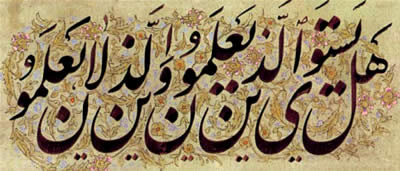 هَل یَستَوِی الَّذینَ یَعلَمُونَ وَ الَّذینَ لا یَعلَمُونَ